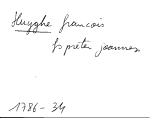 Huyghe francois
fs pieter joannes
1786-34